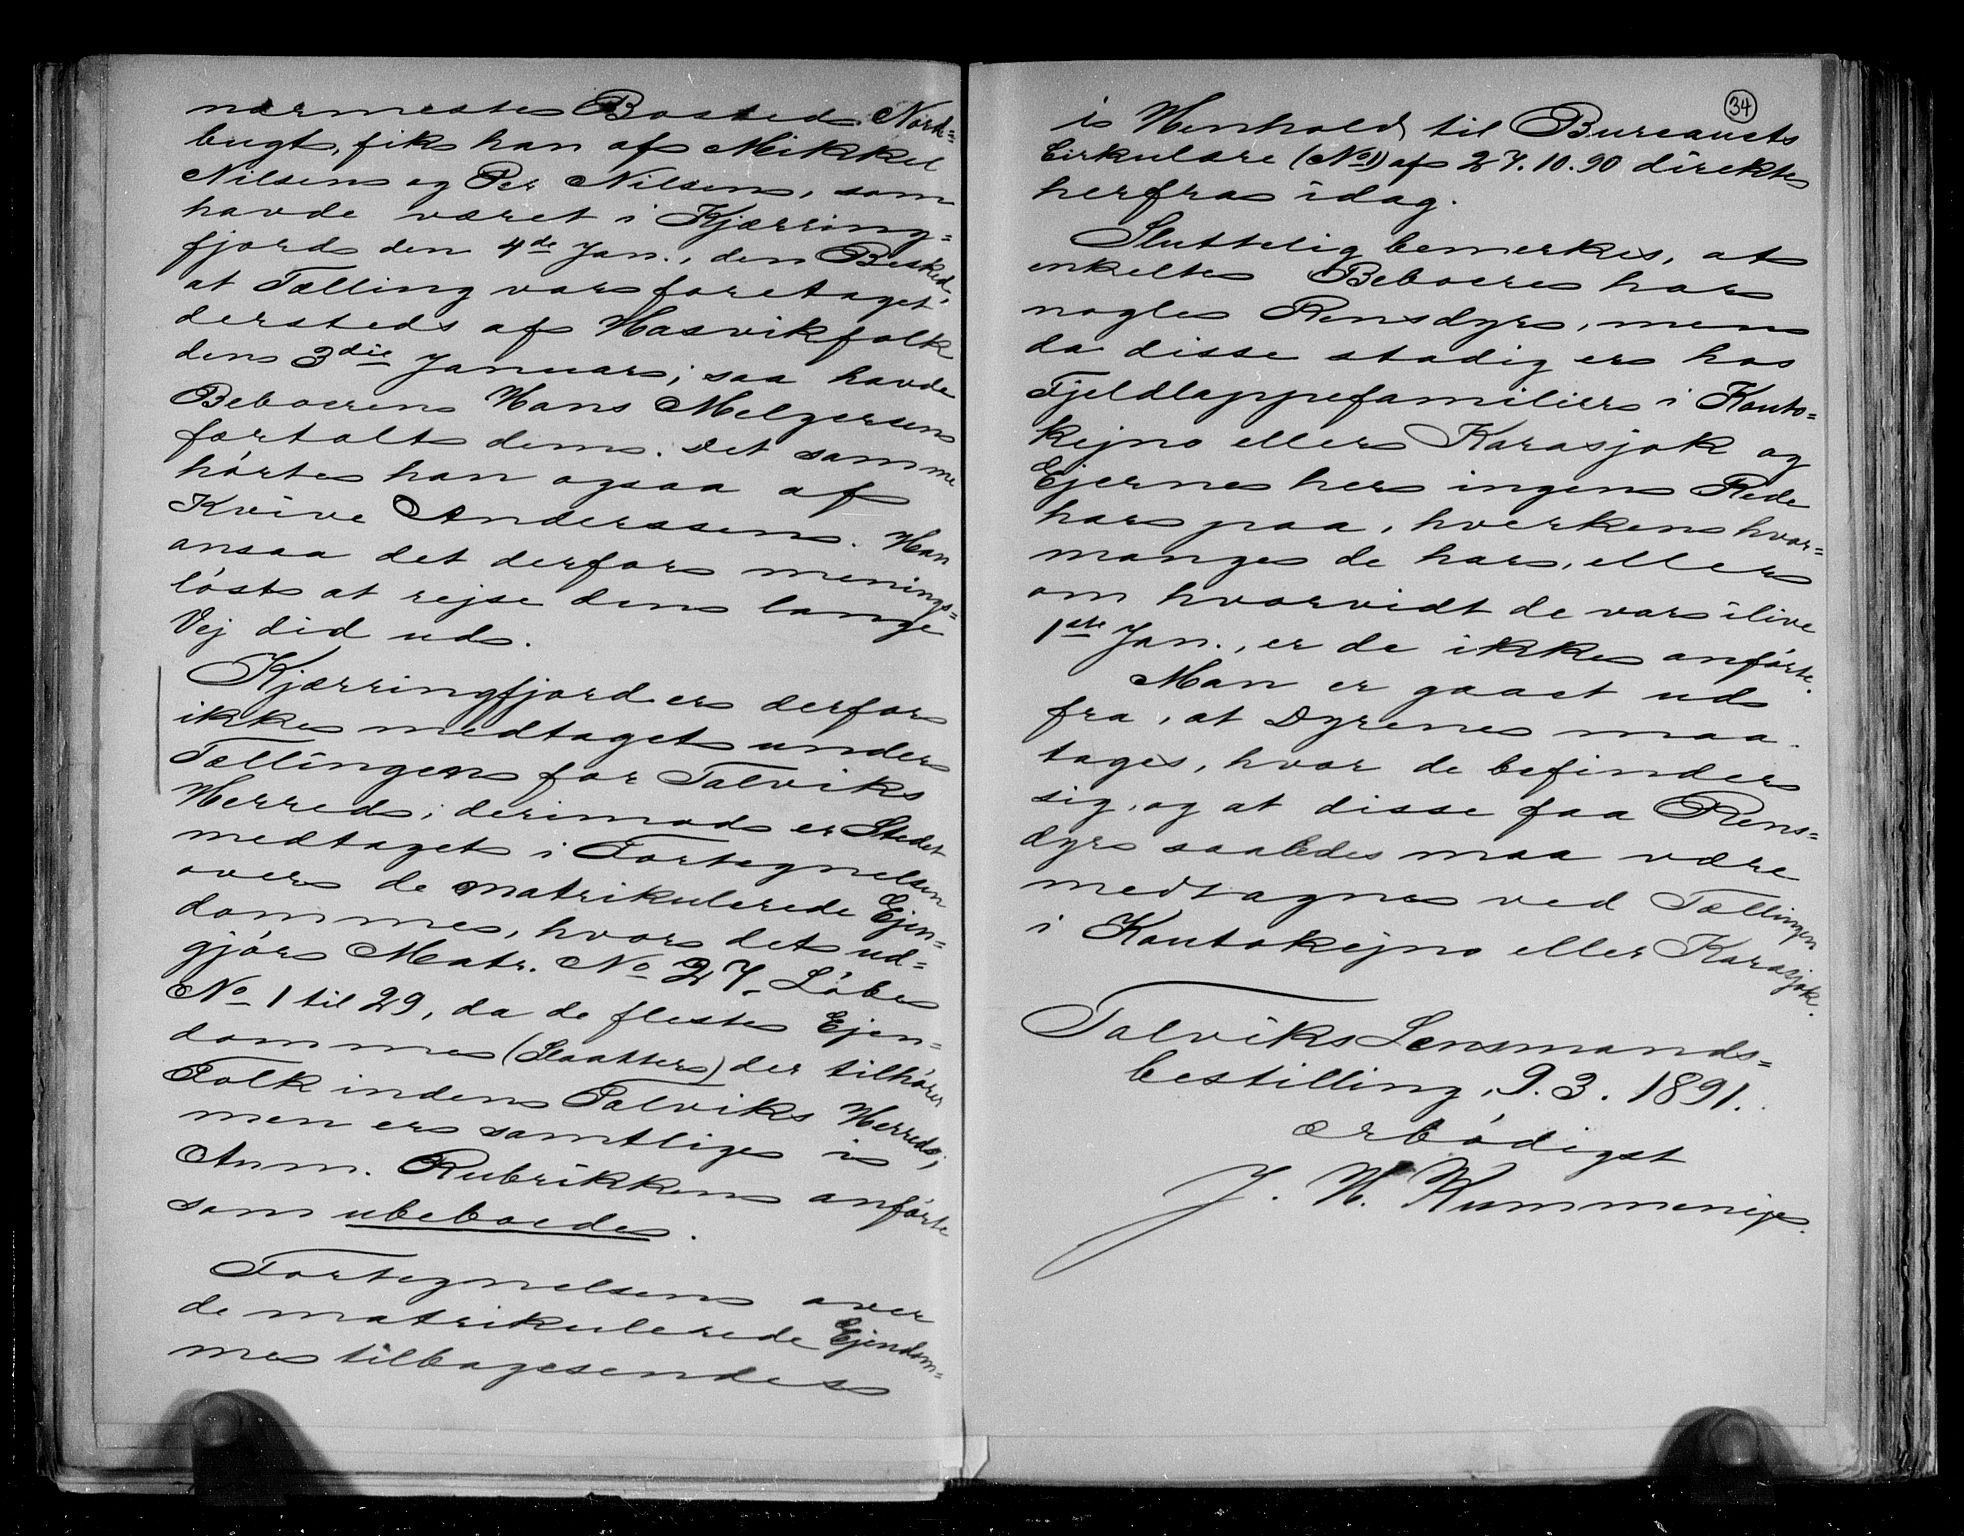 nærmeste Bosted Nord-
bugt, fik han af Mikkel
Nilsen og Per Nilsen, som
havde været i Kjærring-
fjord den 4de Jan., den Besked,
at Tælling var foretaget
dersteds af Hasvikfolk
den 3die Januar; saa havde
Beboeren Hans Melgersen
fortalt dem. Det samme
hørte han ogsaa af
Kvive Anderssen. Han
ansaa det derfor menings-
løst at rejse den lange
Vej did ud.
Kjærringfjord er derfor
ikke medtaget under
Tællingen for Talviks
Herred; derimod er Stedet
medtaget i Fortegnelsen
over de matrikulerede Ejen-
domme, hvor det ud-
gjør Matr. No 27, Løbe
No 1 til 29, da de fleste Ejen-
domme (Slaatter) der tilhører
Folk inden Talviks Herred;
men er samtlige i
Anm. Rubrikken anførte
som ubeboede.
Fortegnelsen over
de matrikulerede Ejendom-
me tilbagesendes
34
i Henhold til Bureauets
Cirkulære (No 1) af 27.10.90 direkte
herfra idag.
Sluttelig bemerkes, at
enkelte Beboere har
nogle Rensdyr, men
da disse stadig er hos
Fjeldlappefamilier i Kauto-
kejno eller Karasjok og
Ejerne her ingen Rede
har paa, hverken hvor-
mange de har, eller
om hvorvidt de var ilive
1ste Jan., er de ikke anførte.
Man er gaaet ud
fra, at Dyrene maa
tages, hvor de befinder
sig, og at disse faa Rens-
dyr saaledes maa være
medtagne ved Tællingen
i Kautokejno eller Karasjok.
Talviks Lensmands-
bestilling, 9.3.1891.
ærbødigst
J. H. Kummeneje.